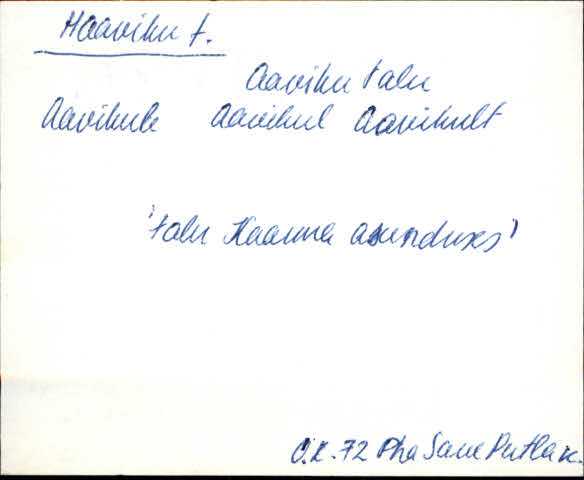 Haaviku t.
Aaviku talu
Aavikule Aavikul Aavikult
'talu Kaarma asunduses'
O.K. 72 Pha Saue Putla k.